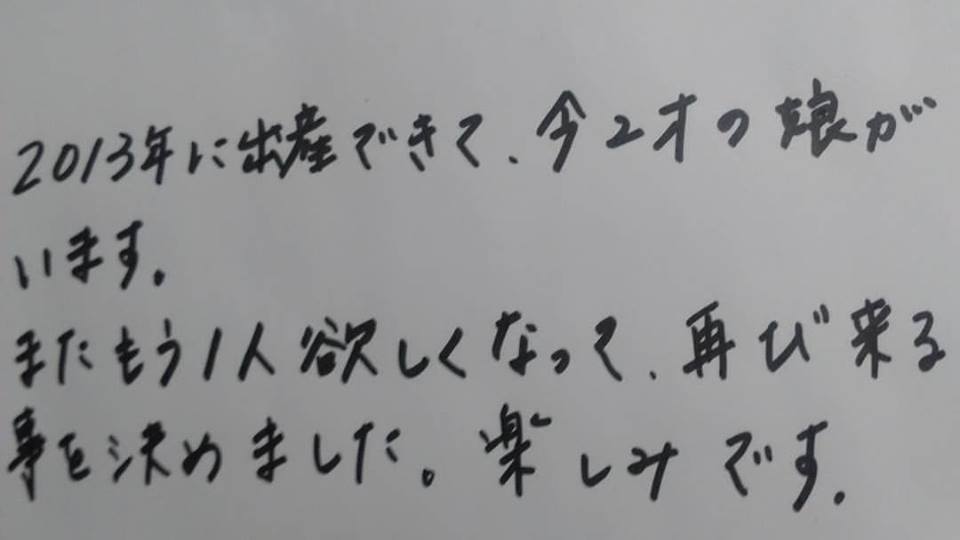 2013年に出産できて、今2才の娘が
います。
またもう1人欲しくなって、再び来る
事を決めました。楽しみです。